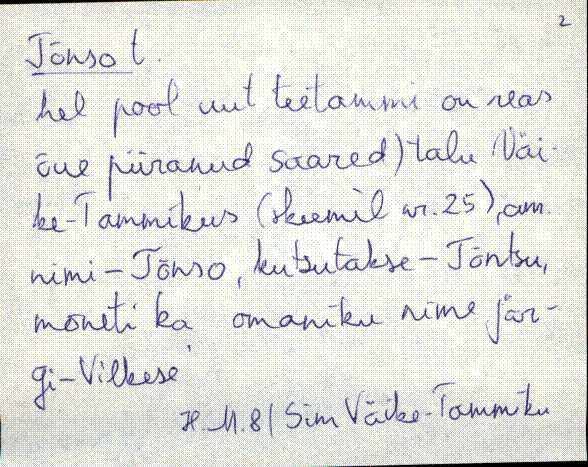 2
Jõnso t.
hel pool uut teetammi on reas
õue piiranud saared) talu Väi-
ke-Tammikus (skeemil nr. 25), am.
nimi - Jõnso, kutsutakse - Jõntsu,
mõneti ka omaniku nime jär-
gi - Vilkese
81 Sim Väike-Tammiku